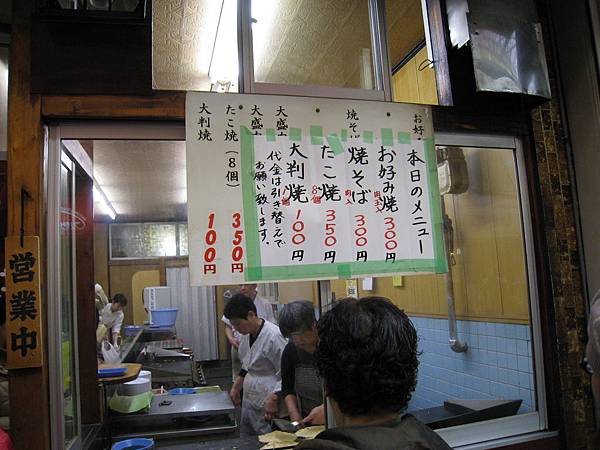 本日のメニュー
お好み焼 肉玉入 300円
焼そば 肉入 300円
たこ焼 8個 350円
大判焼 1個 100円
代金は引き替えで
お願い致します。
お好
焼そ
大盛
大盛
たこ焼(8個) 350円
大判焼 100円
営業中